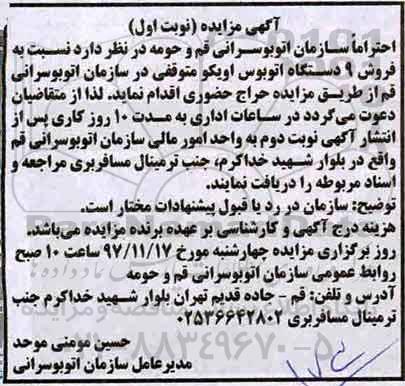 آگهی مزایده (نوبت اول)
احتراماً سازمان اتوبوسرانی قم و حومه در نظر دارد نسبت به
فروش ۹ دستگاه اتوبوس اویکو متوقفی در سازمان اتوبوسرانی
قم از طریق مزایده حراج حضوری اقدام نماید. لذا از متقاضیان
دعوت می‌گردد در ساعات اداری به مدت ۱۰ روز کاری پس از
انتشار آگهی نوبت دوم به واحد امور مالی سازمان اتوبوسرانی قم
واقع در بلوار شهید خداکرم، جنب ترمینال مسافربری مراجعه و
اسناد مربوطه را دریافت نمایند.
توضیح: سازمان در رد یا قبول پیشنهادات مختار است.
هزینه درج آگهی و کارشناسی بر عهده برنده مزایده می‌باشد.
روز برگزاری مزایده چهارشنبه مورخ ۹۷/۱۱/۱۷ ساعت ۱۰ صبح
روابط عمومی سازمان اتوبوسرانی قم و حومه
آدرس و تلفن: قم - جاده قدیم تهران بلوار شهید خداکرم جنب
ترمینال مسافربری ۰۲۵۳۶۶۴۲۸۰۲
حسین مومنی موحد
مدیرعامل سازمان اتوبوسرانی